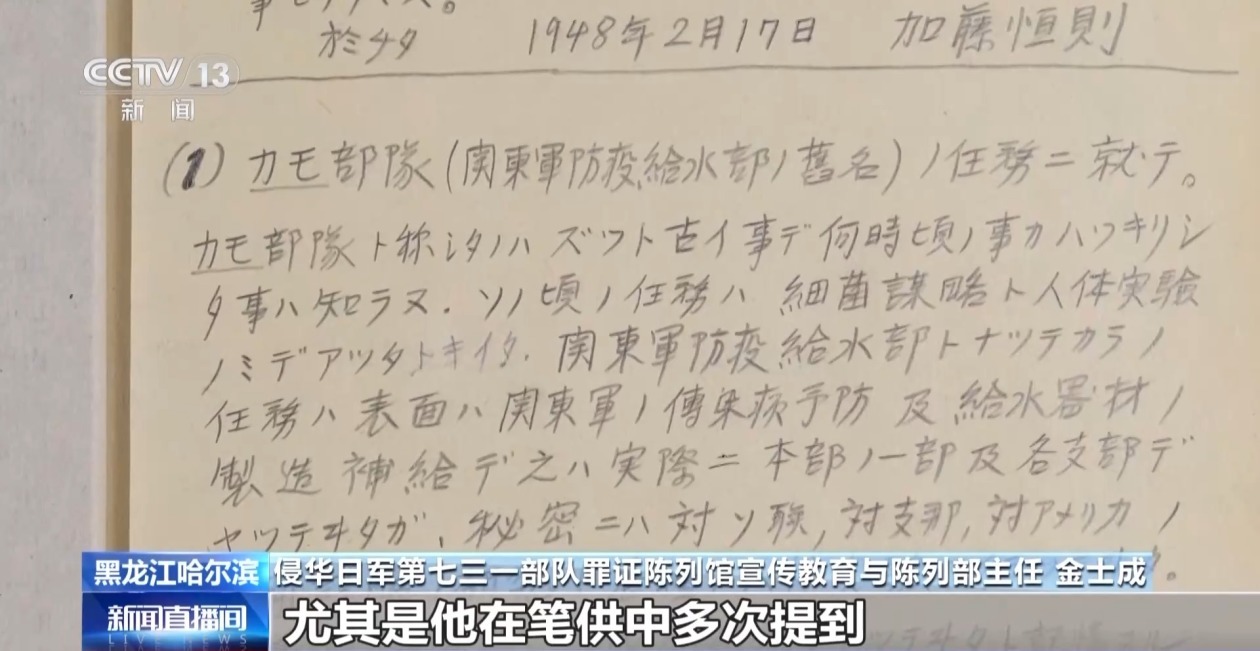 於チタ 1948年2月17日 加藤恒則
CCTV 13
新闻
(1) カモ部隊(関東軍防疫給水部ノ舊名)ノ任務ニ就テ。
カモ部隊ト称シタノハ ズツト古イ事デ何時頃ノ事カハツキリシ
タ事ハ知ラヌ. ソノ頃ノ任務ハ 細菌謀略ト人体実験
ノミデアツタトキイタ. 関東軍防疫給水部トナツテカラノ
任務ハ表面ハ関東軍ノ傳染病予防及給水器材ノ
製造補給デ之ハ実際ニ本部ノ一部及各支部デ
ヤツテヰタガ、秘密ニハ対ソ聯,対支那,対アメリカノ
黑龙江哈尔滨 侵华日军第七三一部队罪证陈列馆宣传教育与陈列部主任 金士成
新闻直播间
LIVE NEWS
尤其是他在笔供中多次提到